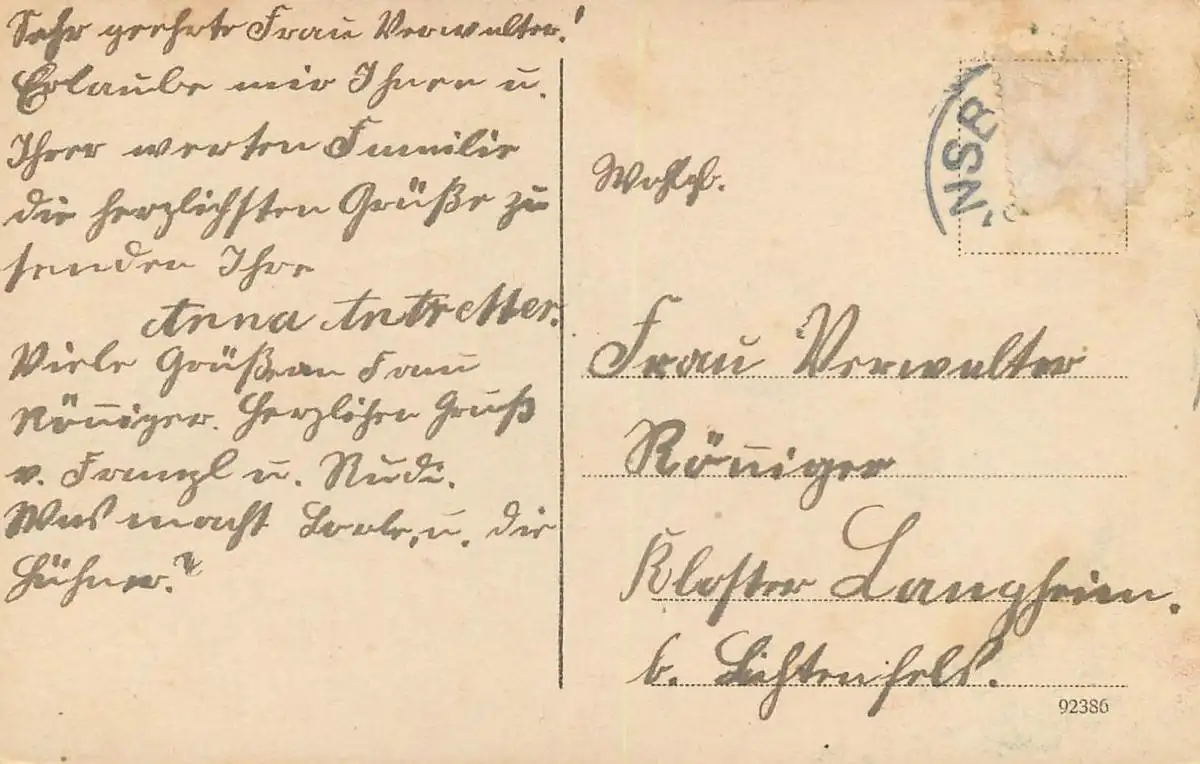 Sehr geehrte Frau Verwalter!
Erlaube mir Ihnen u.
Ihrer werten Familie
die herzlichsten Grüße zu
senden Ihre
Anna Antretter.
Viele Grüße an Frau
Röniger. Herzlichen Gruß
v. Franzl u. Rudi.
Was macht Lorle, u. die
Hühner?
Wohlgb.
Frau Verwalter
Röniger
Kloster Langheim.
b. Lichtenfels.
92386